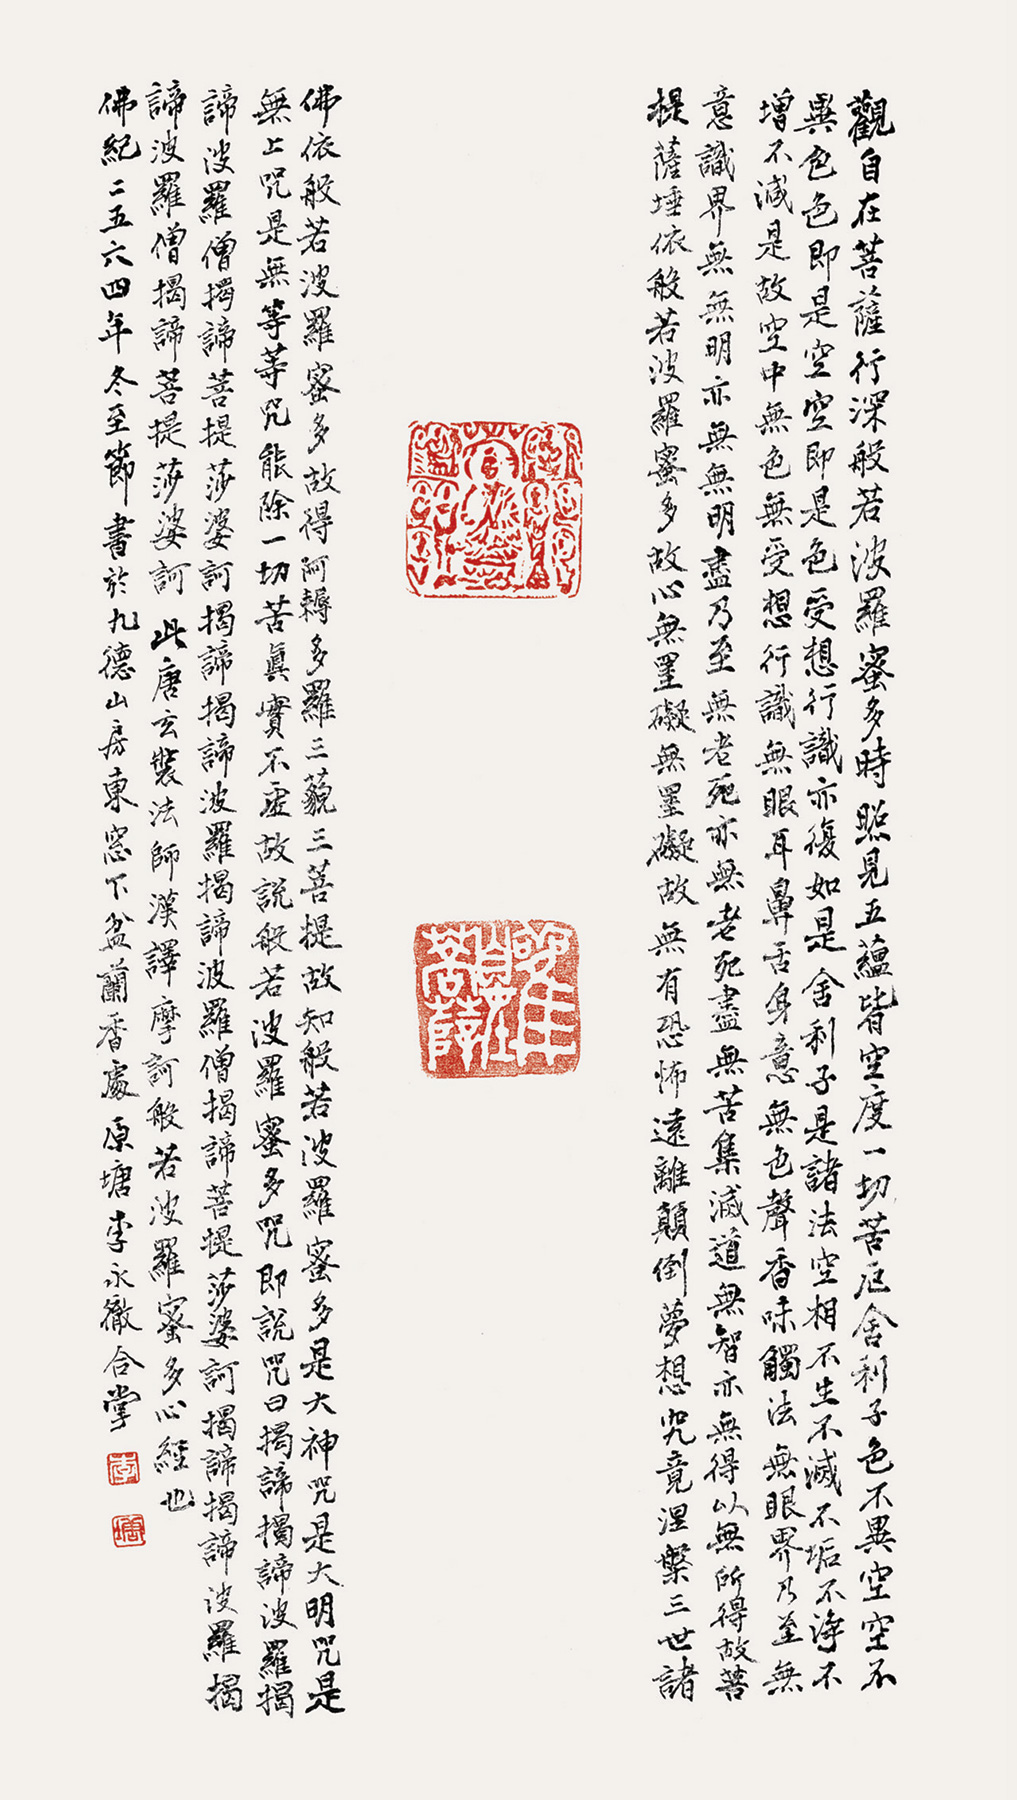 觀自在菩薩行深般若波羅蜜多時照見五蘊皆空度一切苦厄舍利子色不異空空不
異色色即是空空即是色受想行識亦復如是舍利子是諸法空相不生不滅不垢不淨不
增不減是故空中無色無受想行識無眼耳鼻舌身意無色聲香味觸法無眼界乃至無
意識界無無明亦無無明盡乃至無老死亦無老死盡無苦集滅道無智亦無得以無所得故菩
提薩埵依般若波羅蜜多故心無罣礙無罣礙故無有恐怖遠離顛倒夢想究竟涅槃三世諸
觀自在菩薩
佛依般若波羅蜜多故得阿耨多羅三藐三菩提故知般若波羅蜜多是大神咒是大明咒是
無上咒是無等等咒能除一切苦眞實不虛故說般若波羅蜜多咒即說咒曰揭諦揭諦波羅揭
諦波羅僧揭諦菩提莎婆訶揭諦揭諦波羅揭諦波羅僧揭諦菩提莎婆訶揭諦揭諦波羅揭
諦波羅僧揭諦菩提莎婆訶 此唐玄奘法師漢譯摩訶般若波羅蜜多心經也
佛紀二五六四年冬至節書於九德山房東窓下盆蘭香處原塘李永徹合掌